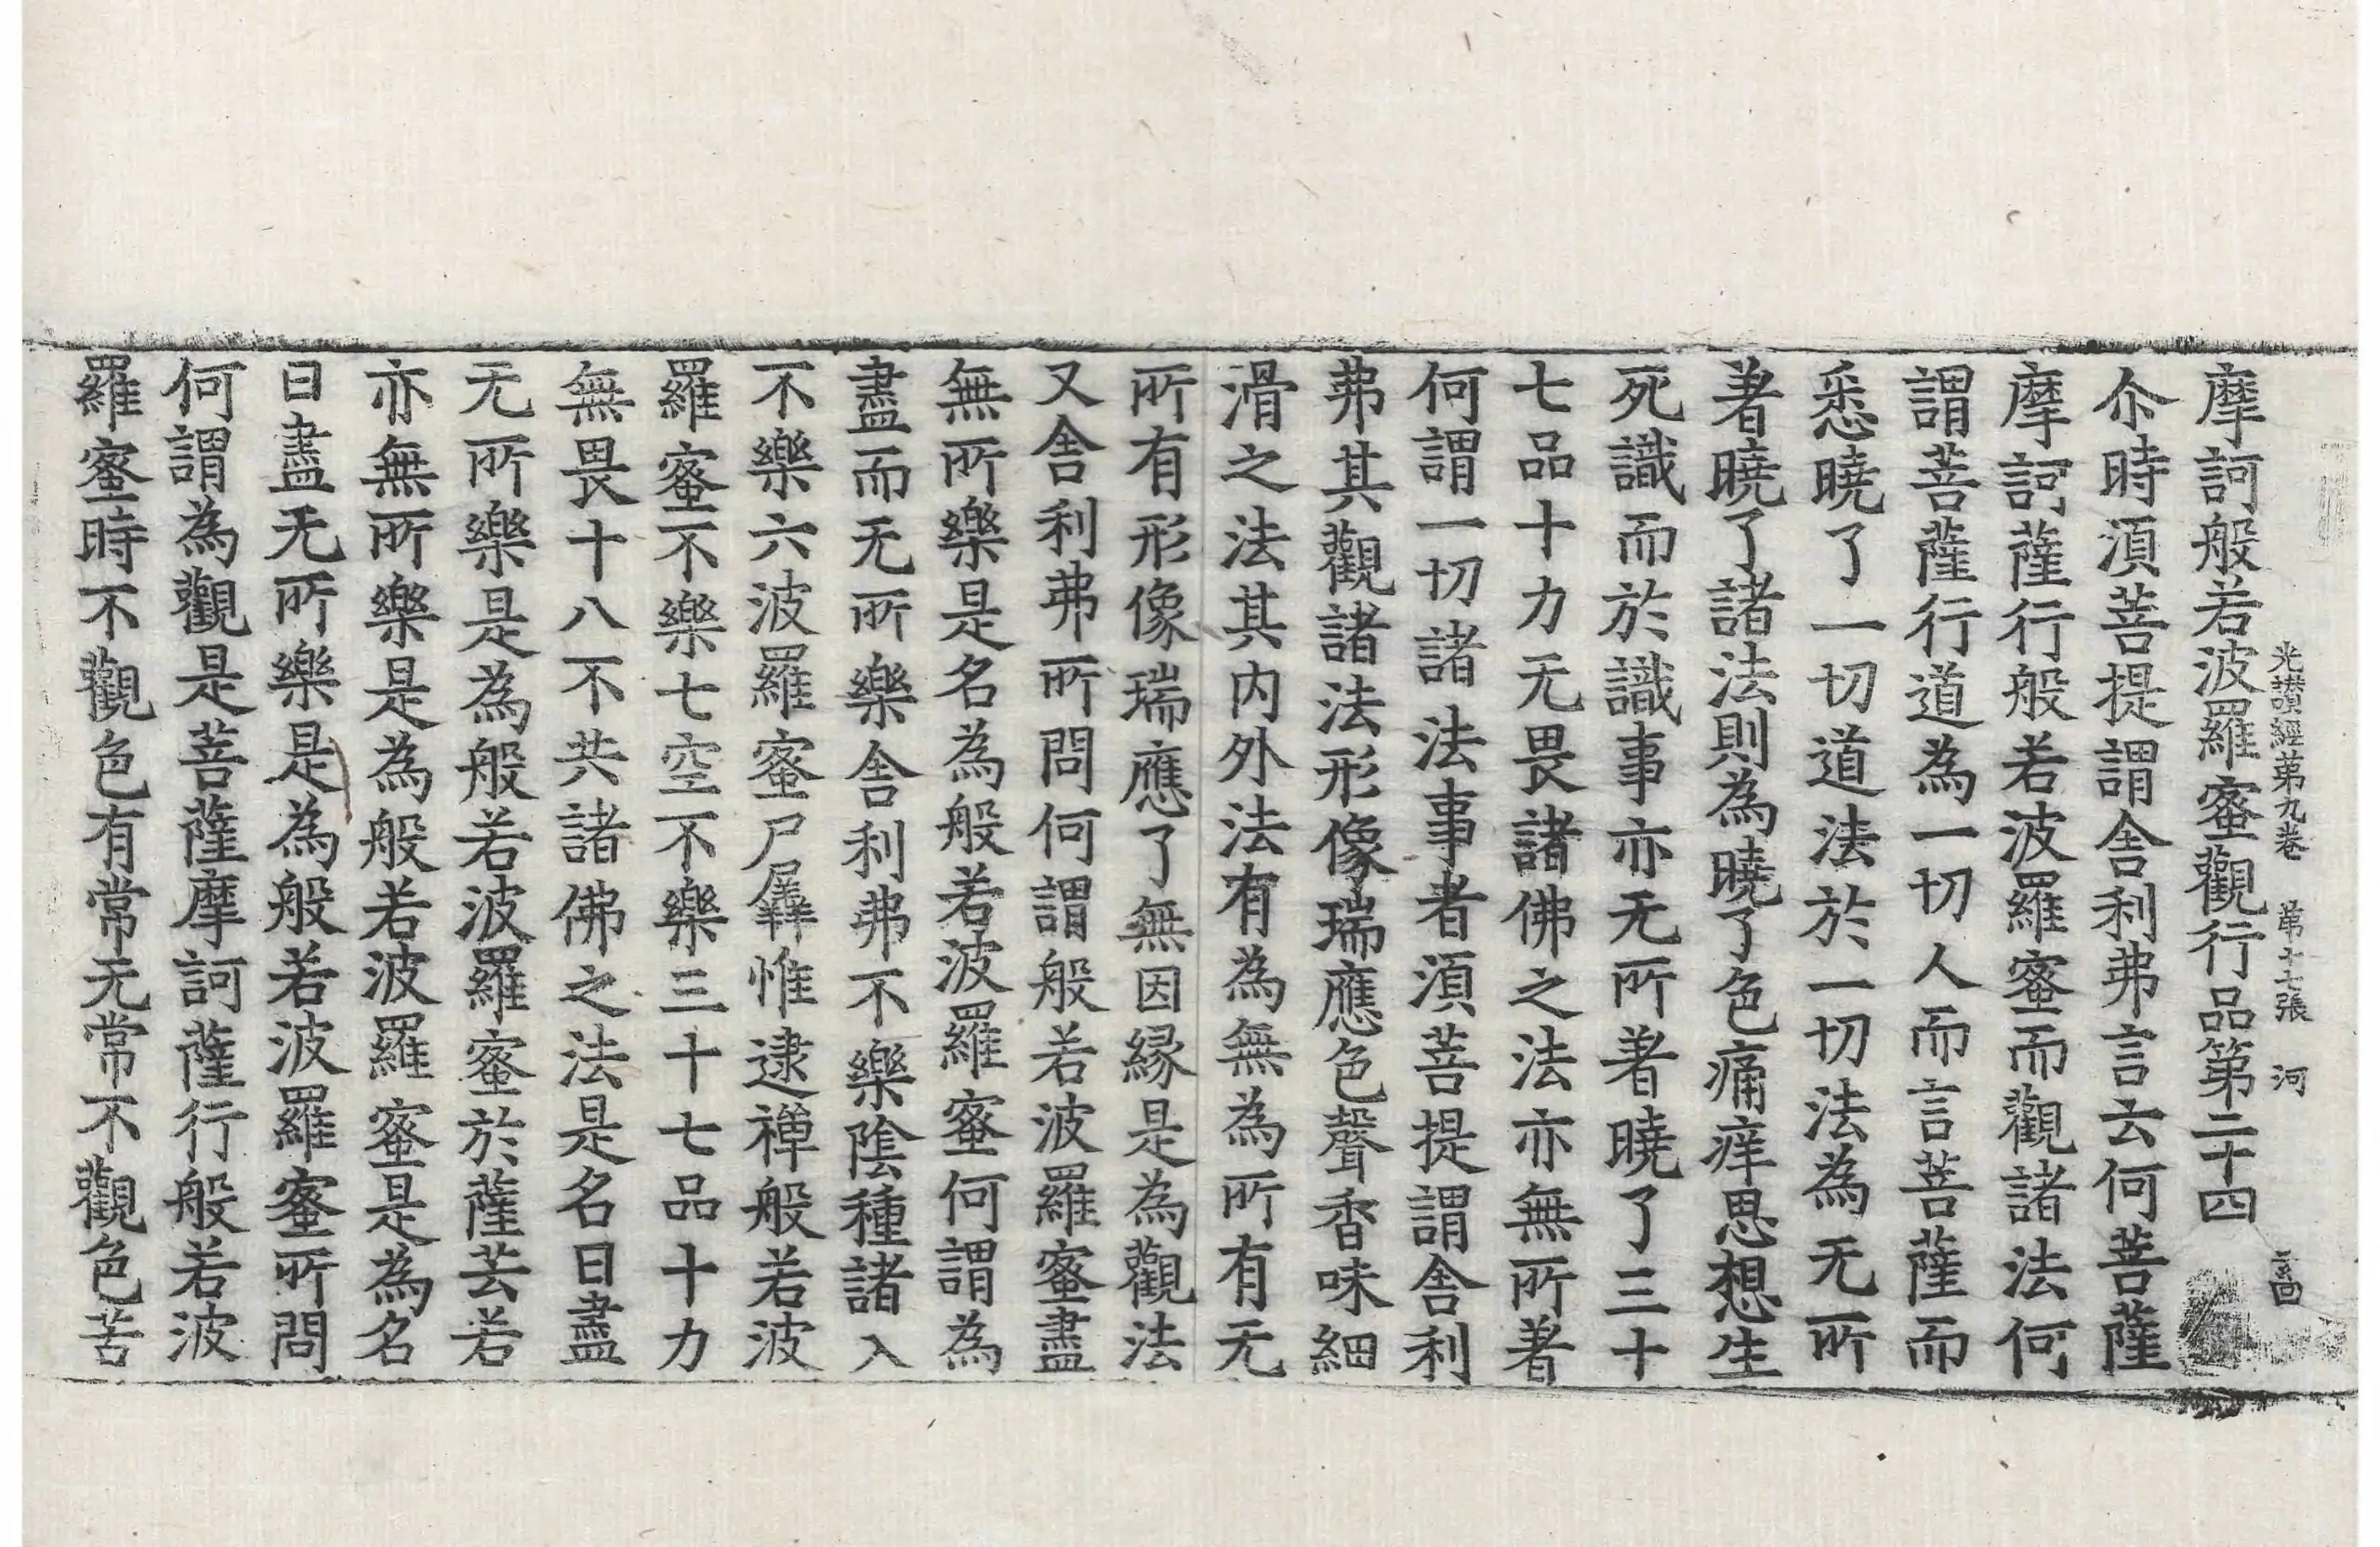 光讃經第九卷 第十七張 河
摩訶般若波羅蜜觀行品第二十四
尒時須菩提謂舍利弗言云何菩薩
摩訶薩行般若波羅蜜而觀諸法何
謂菩薩行道為一切人而言菩薩而
悉曉了一切道法於一切法為无所
著曉了諸法則為曉了色痛痒思想生
死識而於識事亦无所著曉了三十
七品十力无畏諸佛之法亦無所著
何謂一切諸法事者須菩提謂舍利
弗其觀諸法形像瑞應色聲香味細
滑之法其内外法有為無為所有无
所有形像瑞應了無因緣是為觀法
又舍利弗所問何謂般若波羅蜜盡
無所樂是名為般若波羅蜜何謂為
盡而无所樂舍利弗不樂陰種諸入
不樂六波羅蜜尸羼惟逮禅般若波
羅蜜不樂七空不樂三十七品十力
無畏十八不共諸佛之法是名曰盡
无所樂是為般若波羅蜜於薩芸若
亦無所樂是為般若波羅蜜是為名
曰盡无所樂是為般若波羅蜜所問
何謂為觀是菩薩摩訶薩行般若波
羅蜜時不觀色有常无常不觀色苦